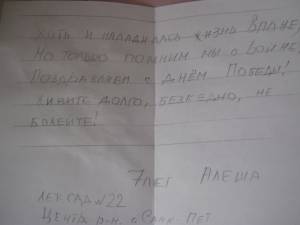 Хоть и наладилась жизнь вполне,
Но только помним мы о войне,
Поздравляем с Днём Победы!
Живите долго, безбедно, не
болейте!
7 лет Алеша
дек. сад №22
Центр. р-н. г. Санк-Пет